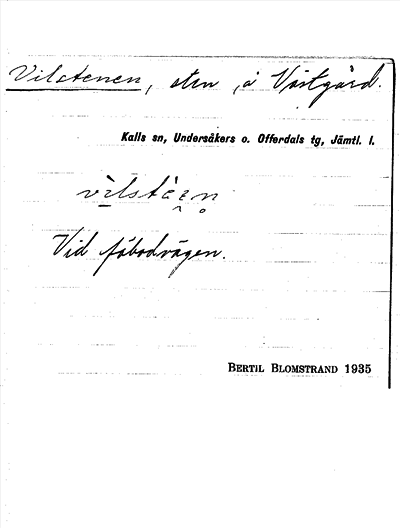 Vilstenen, sten å Västgård.
Kalls sn, Undersåkers o. Offerdals tg, Jämtl. l.
Vid fäbodvägen.
BERTIL BLOMSTRAND 1935